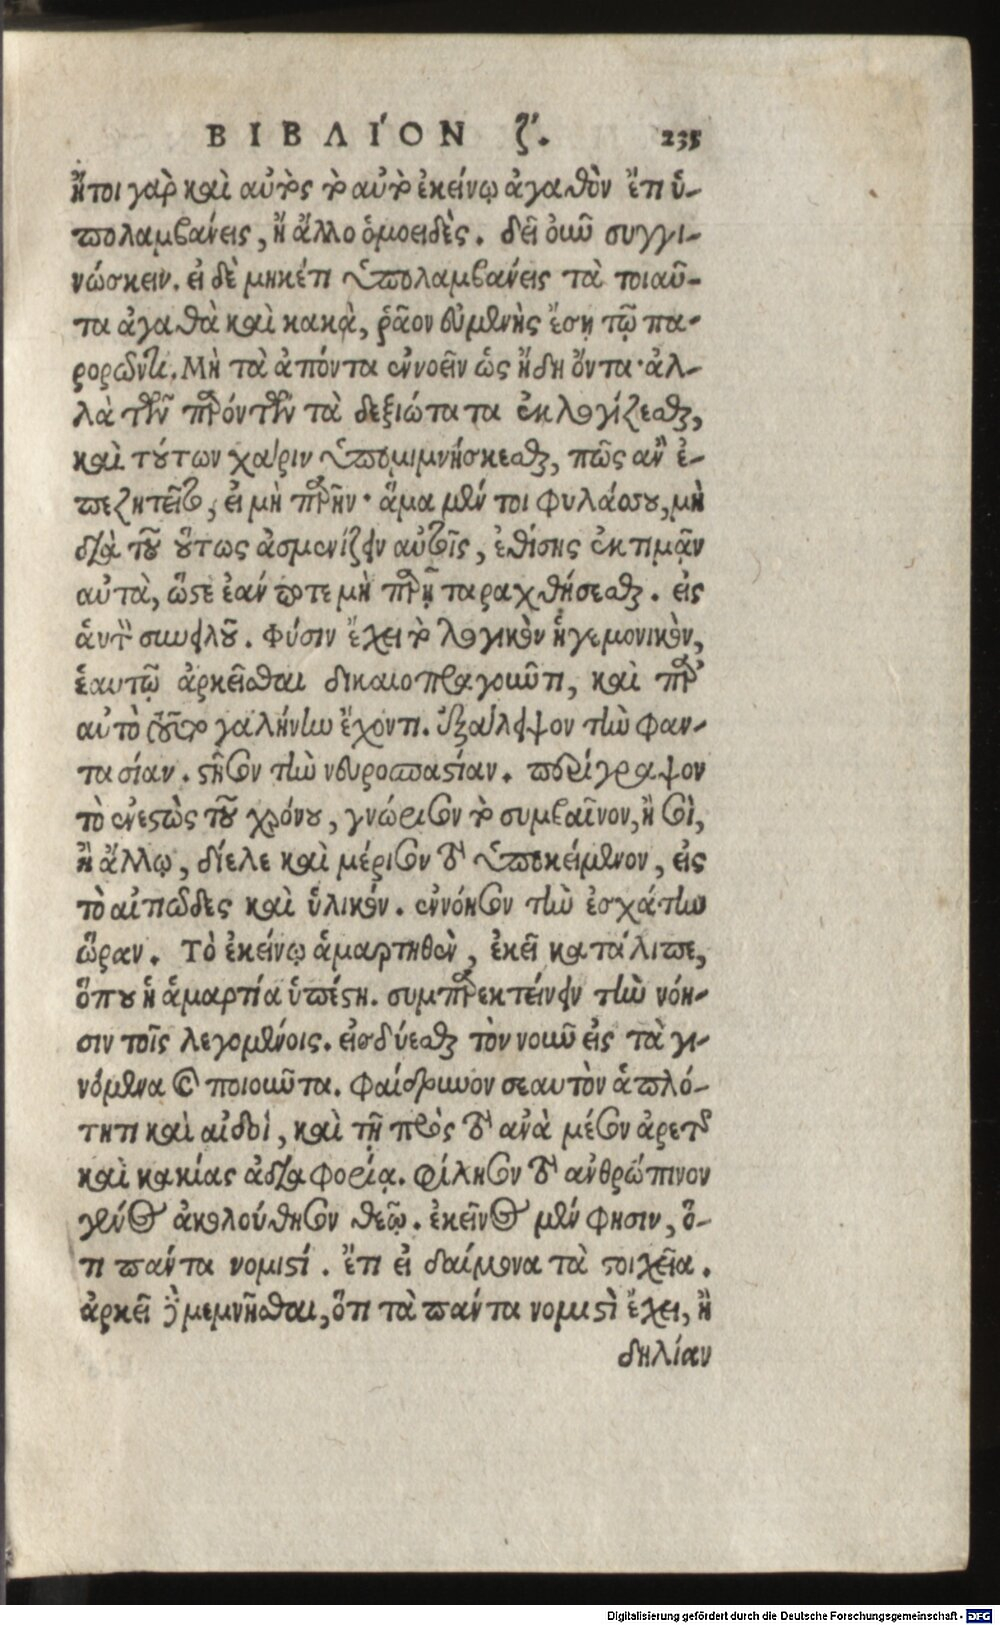 ΒΙΒΛΊΟΝ ζ'. 235
ἤτοι γὰρ καὶ αὐτὸς τὸ αὐτὸ ἐκείνῳ ἀγαθὸν ἔτι ὑ-
πολαμβάνεις, ἢ ἄλλο ὁμοειδὲς. δεῖ οὖν συγγι-
νώσκειν. εἰ δὲ μηκέτι ὑπολαμβάνεις τὰ τοιαῦ-
τα ἀγαθὰ καὶ κακὰ, ῥᾷον εὐμενὴς ἔσῃ τῷ πα-
ρορῶντι. Μὴ τὰ ἀπόντα ἐννοεῖν ὡς ἤδη ὄντα· ἀλ-
λὰ τῶν παρόντων τὰ δεξιώτατα ἐκλογίζεσθαι,
καὶ τούτων χάριν ὑπομιμνήσκεσθαι, πῶς ἂν ἐ-
πεζητεῖτο, εἰ μὴ παρῆν· ἅμα μέν τοι φυλάσσου, μὴ
διὰ τοῦ οὕτως ἀσμενίζειν αὐτοῖς, ἐθίσῃς ἐκτιμᾷν
αὐτὰ, ὥστε ἐάν ποτε μὴ παρῇ ταραχθήσεσθαι. εἰς
ἁυτὸν συνειλοῦ. Φύσιν ἔχει τὸ λογικὸν ἡγεμονικὸν,
ἑαυτῷ ἀρκεῖσθαι δικαιοπραγοῦντι, καὶ παρ'
αὐτὸ τοῦτο γαλήνην ἔχοντι. Ἐξάλειψον τὴν φαν-
τασίαν. στῆσον τὴν νευροσπαστίαν. περίγραψον
τὸ ἐνεστὼς τοῦ χρόνου, γνώρισον τὸ συμβαῖνον, ἢ σοὶ,
ἢ ἄλλῳ, δίελε καὶ μέρισον τὸ ὑποκείμενον, εἰς
τὸ αἰτιῶδες καὶ ὑλικόν. ἐννόησον τὴν ἐσχάτην
ὥραν. Τὸ ἐκείνῳ ἁμαρτηθὲν, ἐκεῖ κατάλιπε,
ὅπου ἡ ἁμαρτία ὑπέστη. συμπαρεκτείνειν τὴν νόη-
σιν τοῖς λεγομένοις. εἰσδύεσθαι τὸν νοῦν εἰς τὰ γι-
νόμενα καὶ ποιοῦντα. Φαίδρυνον σεαυτὸν ἁπλό-
τητι καὶ αἰδοῖ, καὶ τῇ πρὸς τὸ ἀνὰ μέσον ἀρετῆς
καὶ κακίας ἀδιαφορίᾳ. Φίλησον τὸ ἀνθρώπινον
γένος ἀκολούθησον θεῷ. ἐκεῖνος μέν φησιν, ὅ-
τι πάντα νομιστί. ἔτι εἰ δαίμονα τὰ στοιχεῖα.
ἀρκεῖ δὲ μεμνῆσθαι, ὅτι τὰ πάντα νομιστὶ ἔχει, ἢ
δηλίαν